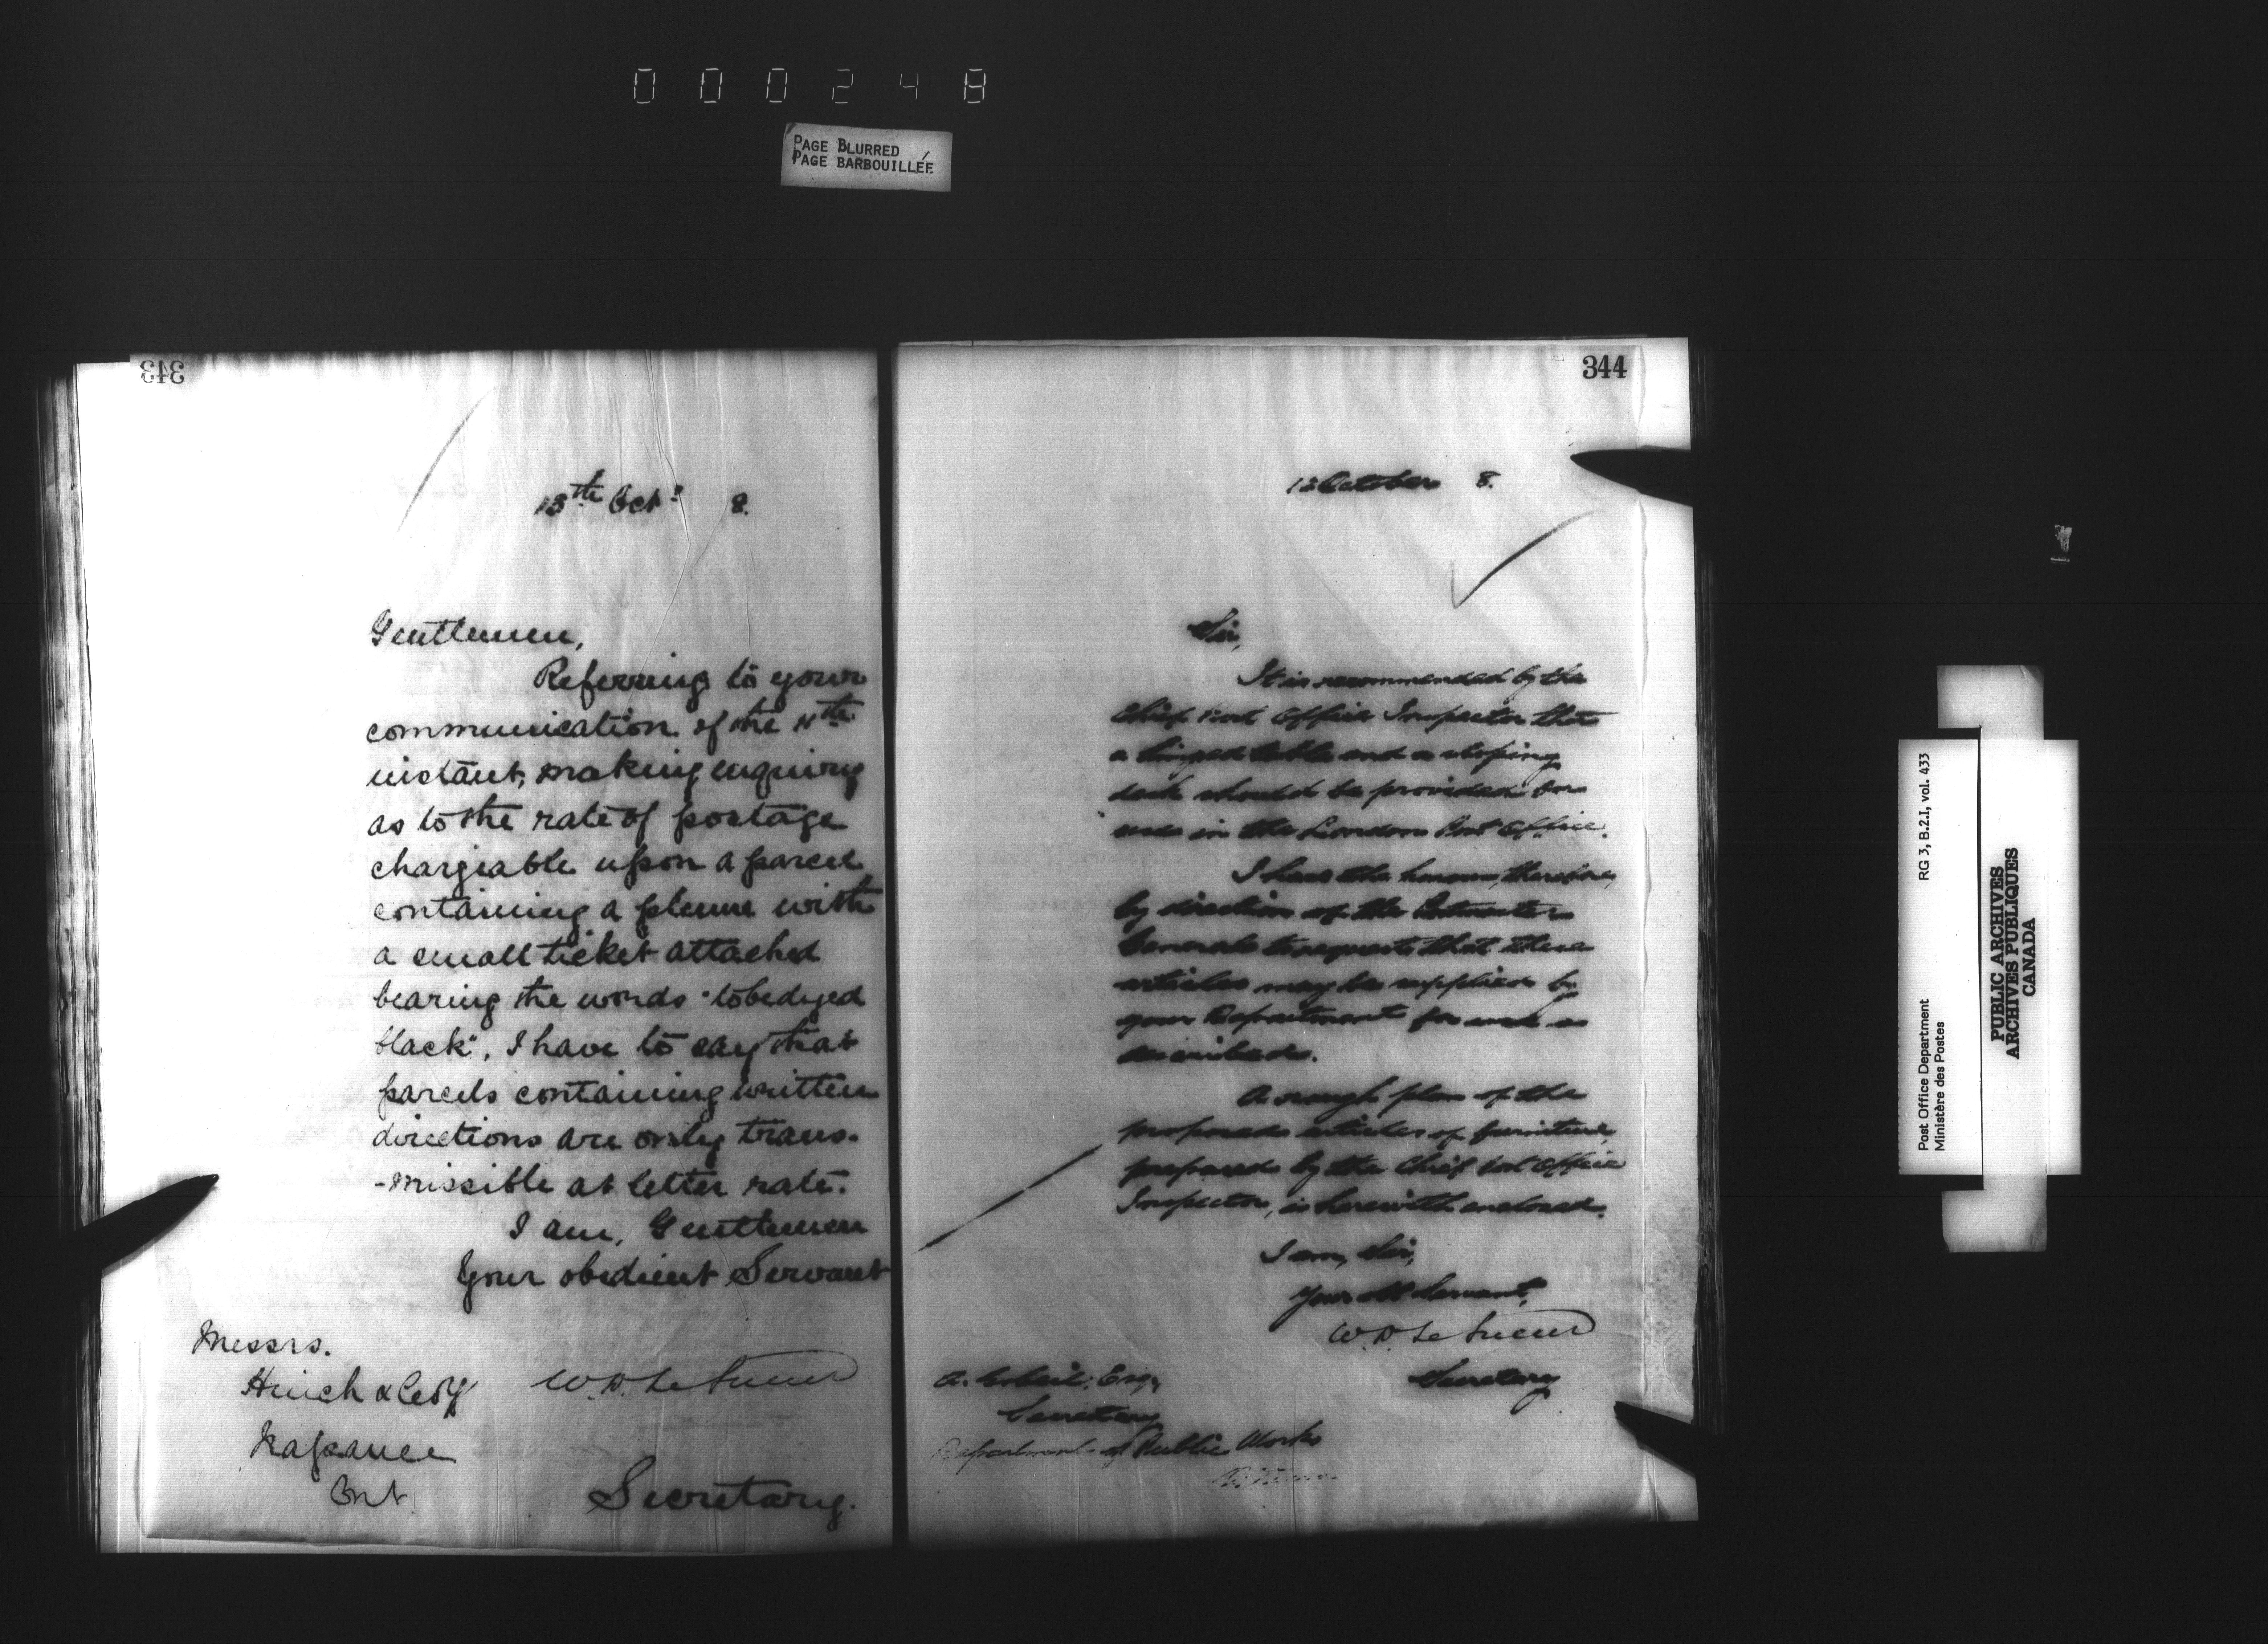 000248
PAGE BLURRED
PAGE BARBOUILLÉE
343
13th Oct. 8.
Gentlemen,
Referring to your
communication of the 11th
instant, making enquiry
as to the rate of postage
chargeable upon a parcel
containing a plume with
a small ticket attached
bearing the words "to be dyed
black", I have to say that
parcels containing written
directions are only trans-
-missible at letter rate.
I am, Gentlemen
Your obedient Servant
W. D. Le Sueur
Secretary.
Messrs.
Hinch & Co
Napanee
Ont
344
October 8.
Sir,
It is recommended by the
Chief Post Office Inspector that
a hinged table and a sloping
desk should be provided for
use in the London Post Office.
I have the honour, therefore,
by direction of the Postmaster
General to request that these
articles may be supplied by
your Department for use as
described.
A rough plan of the
proposed articles of furniture,
prepared by the Chief Post Office
Inspector, is herewith enclosed.
I am, Sir,
Your obt Servant,
W. D. Le Sueur
Secretary
A. Gobeil, Esq,
Secretary
Department of Public Works
Post Office Department
Ministère des Postes
RG 3, B.2.I, vol. 433
PUBLIC ARCHIVES
ARCHIVES PUBLIQUES
CANADA